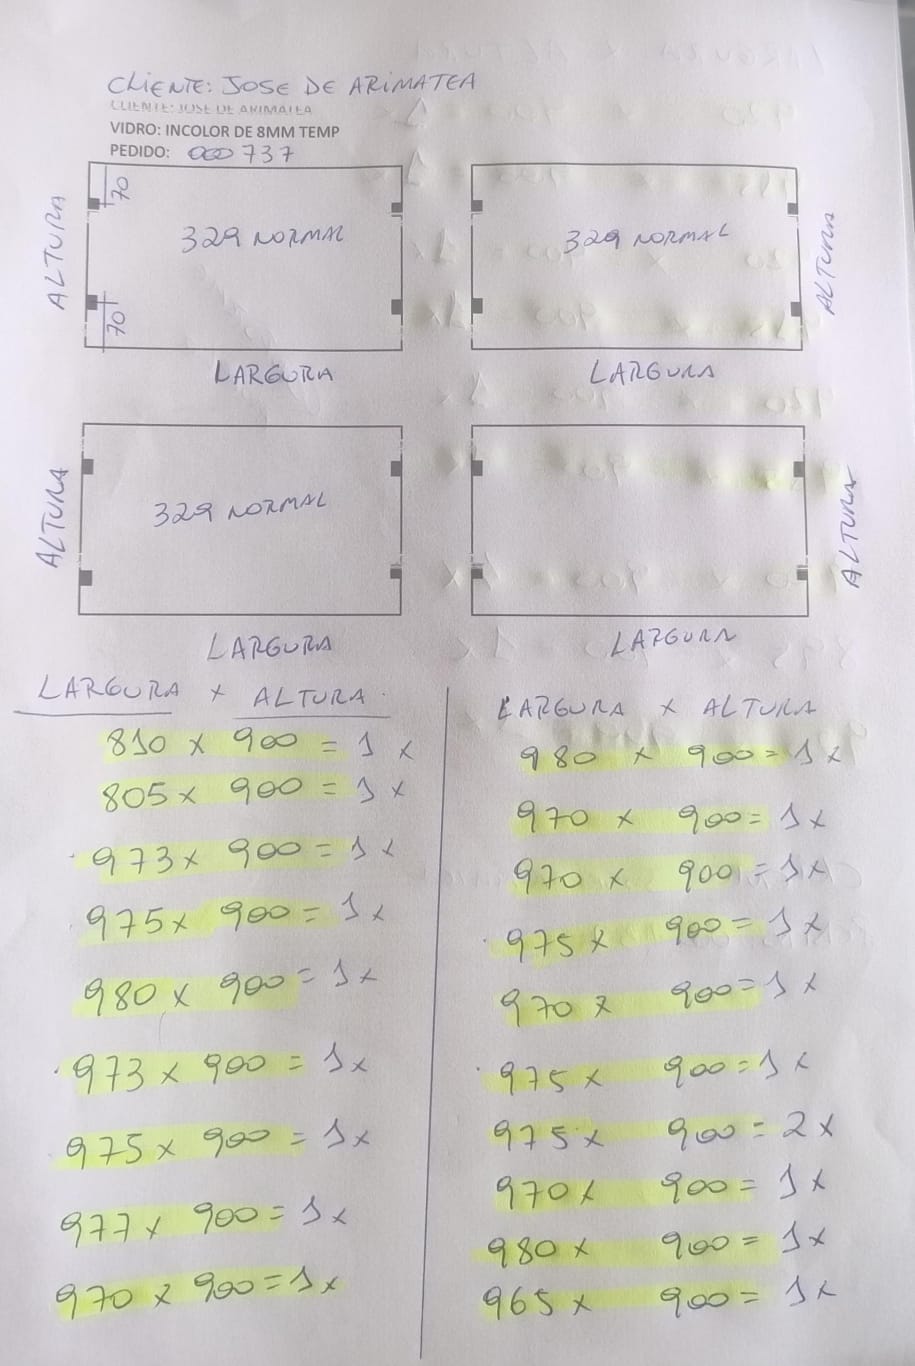 CLIENTE: JOSE DE ARIMATEA
CLIENTE: JOSE DE ARIMATEA
VIDRO: INCOLOR DE 8MM TEMP
PEDIDO: 000737
ALTURA
70
329 NORMAL
70
LARGURA
329 NORMAL
ALTURA
LARGURA
ALTURA
329 NORMAL
LARGURA
ALTURA
LARGURA
LARGURA x ALTURA
810 x 900 = 1x
805 x 900 = 1x
973 x 900 = 1x
975 x 900 = 1x
980 x 900 = 1x
973 x 900 = 1x
975 x 900 = 1x
977 x 900 = 1x
970 x 900 = 1x
LARGURA x ALTURA
980 x 900 = 1x
970 x 900 = 1x
970 x 900 = 1x
975 x 900 = 1x
970 x 900 = 1x
975 x 900 = 1x
975 x 900 = 2x
970 x 900 = 1x
980 x 900 = 1x
965 x 900 = 1x